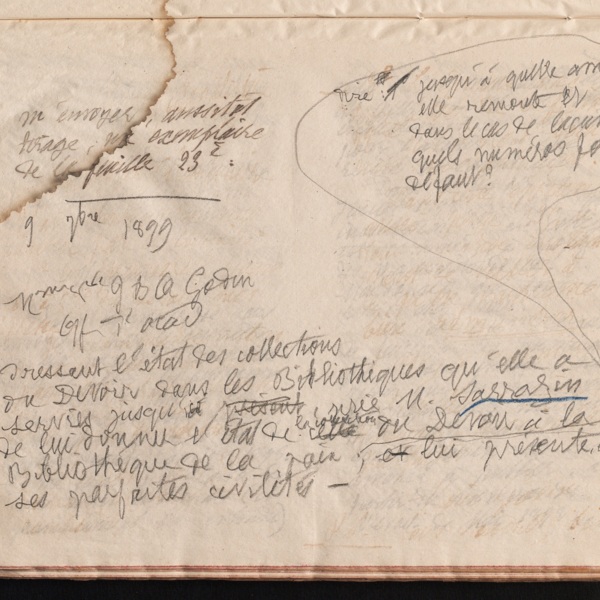 m'envoyer, aussitôt
tirage, un exemplaire
de la feuille 23e.
9 9bre 1899
G D A Godin
Dressant l'état des collections
du Devoir dans les Bibliothèques qu'elle a
servies jusqu'à présent, prie M. Sarrazin
de lui donner l'état de la collection du Devoir à la
Bibliothèque de la paix, et lui présente
ses parfaites civilités —
dire jusqu'à quelle
elle remonte et
dans le cas de
quels numéros
défaut?